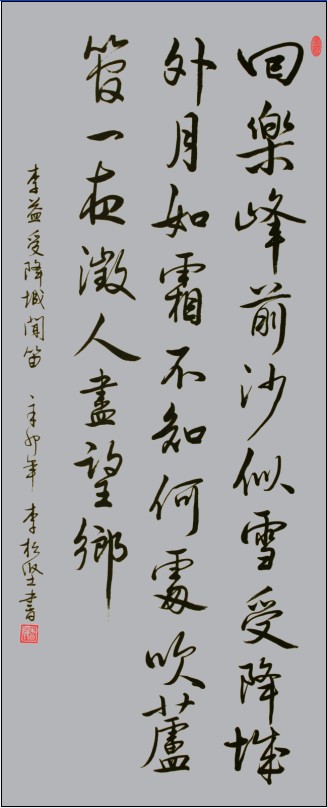 回樂峰前沙似雪受降城
外月如霜不知何處吹蘆
管一夜徵人盡望鄉
李益受降城聞笛 辛卯年 李松坚書